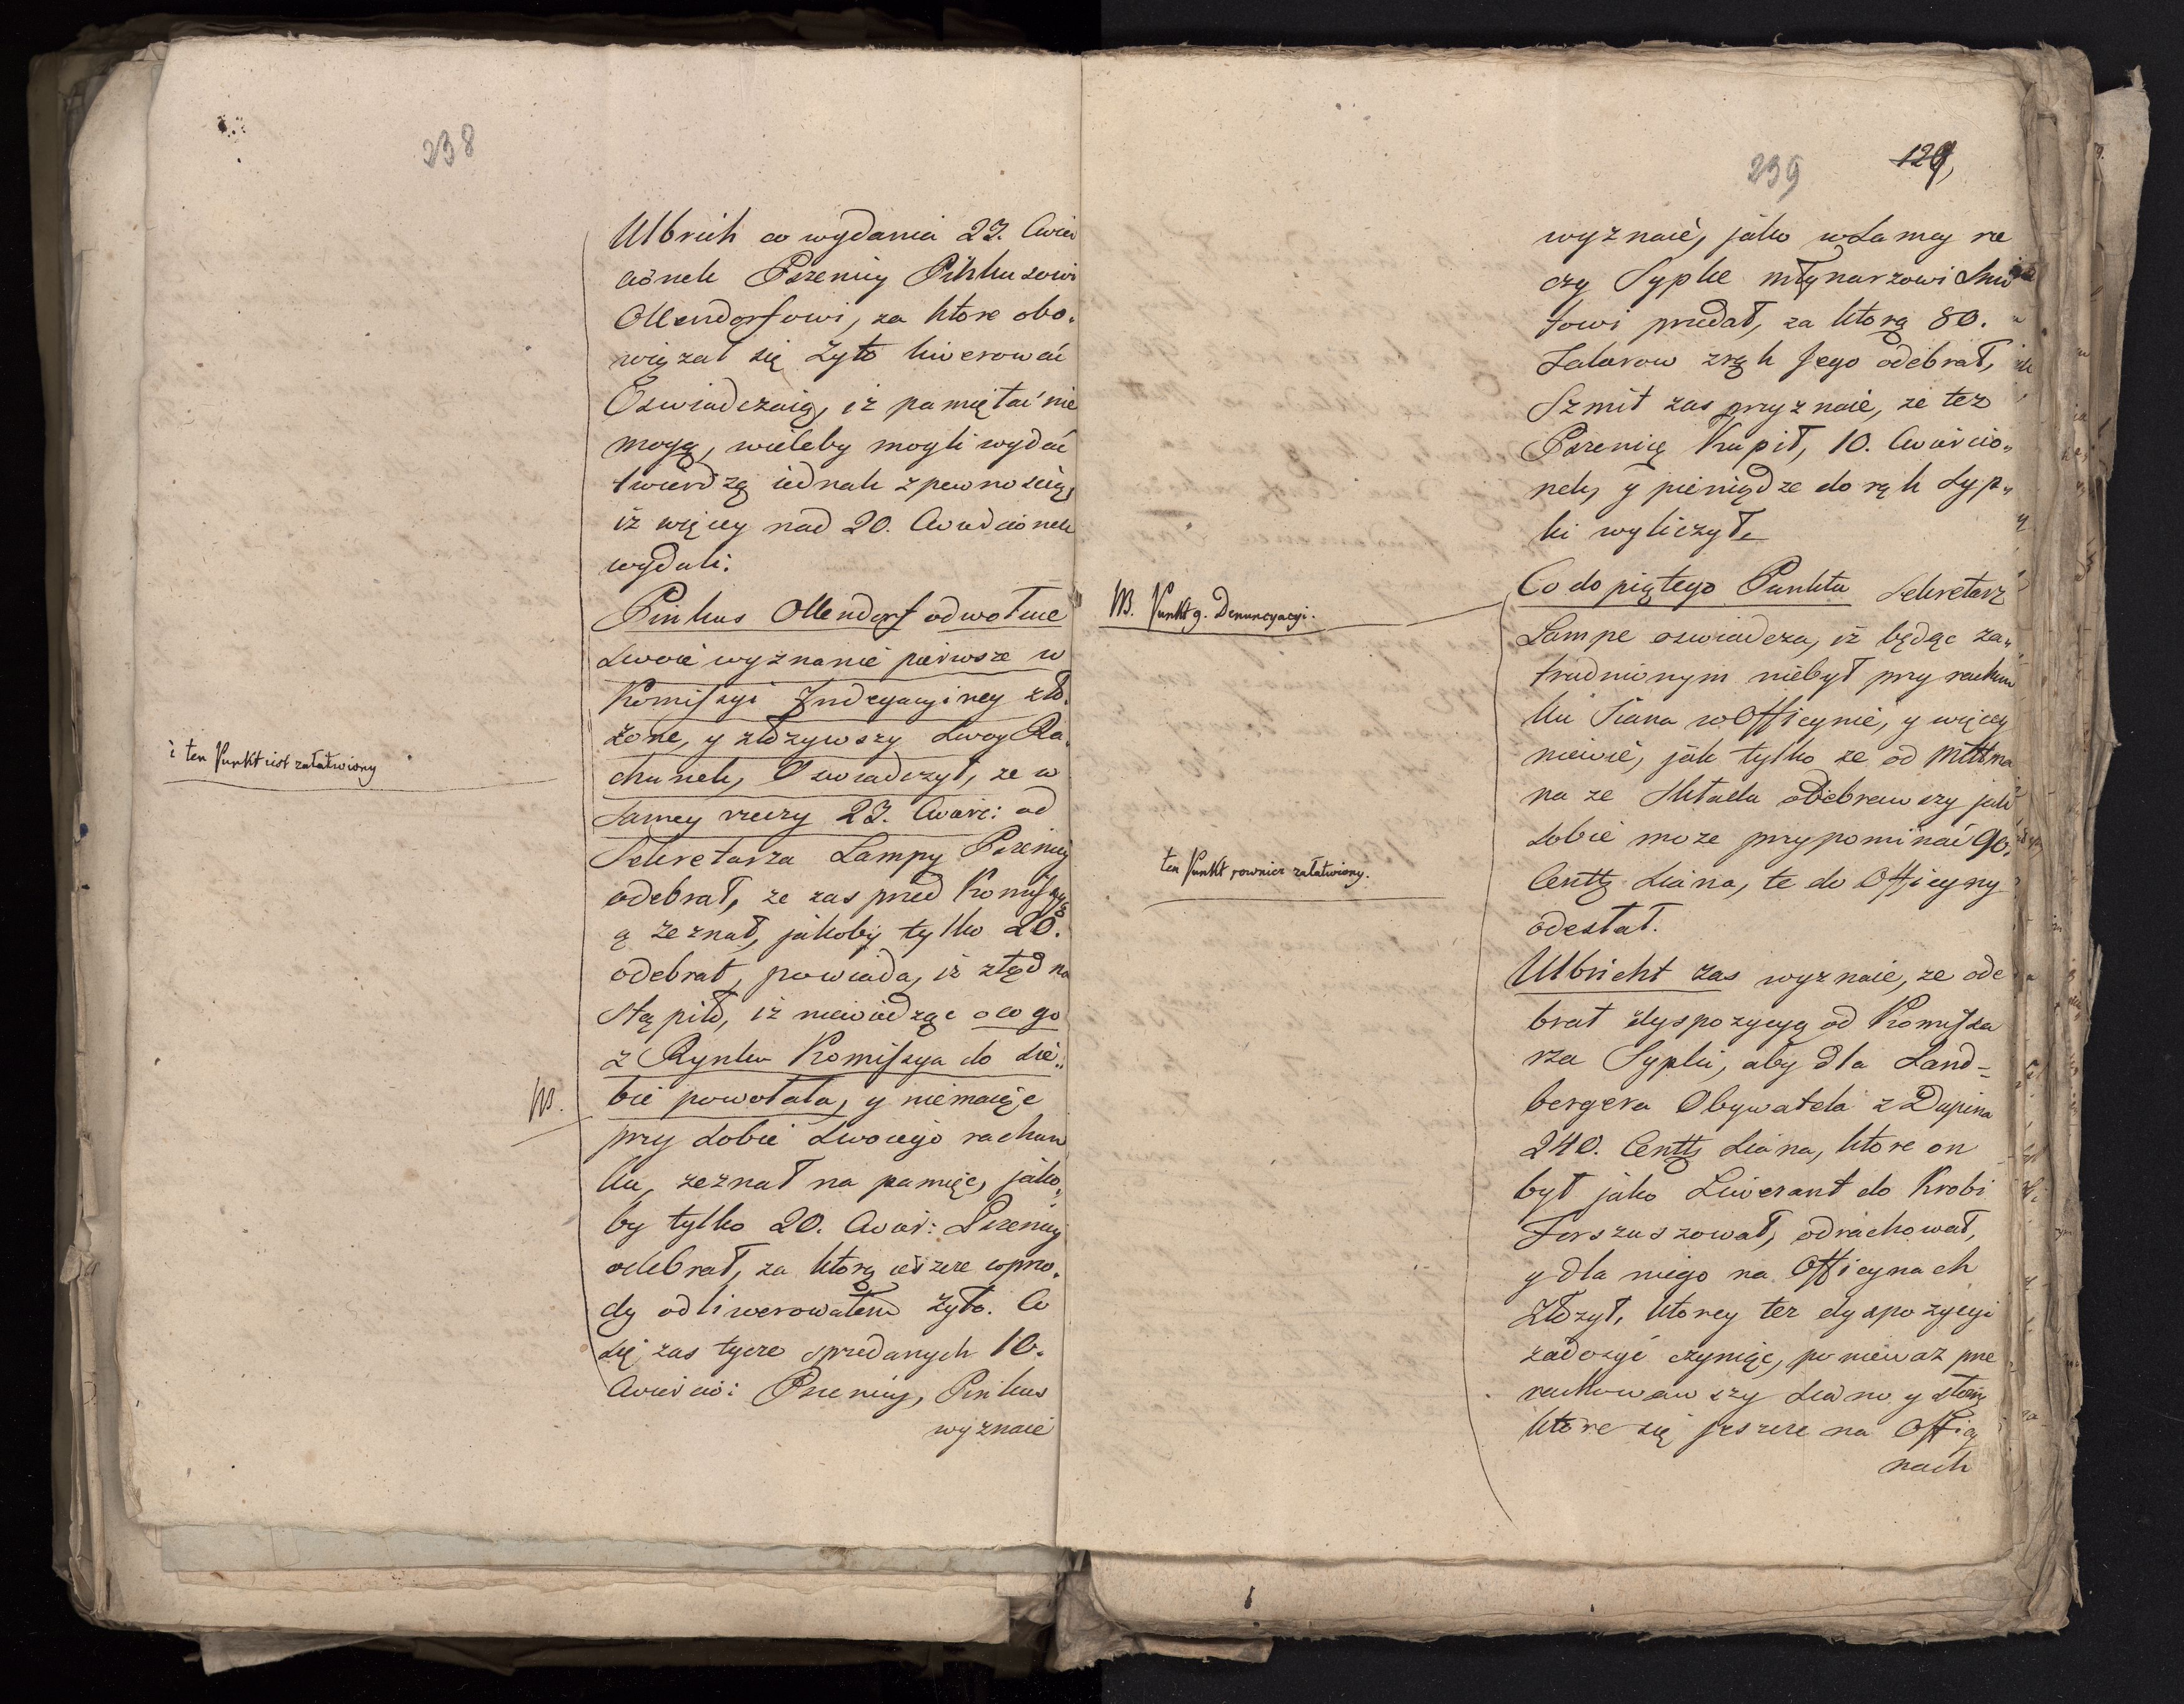 238
Ulbrich co wydania 23. Cwier
cionek Pszenicy Pinkusowi
Ollendorfowi, za ktore obo-
wiązał się Zyto liwerować
Oswiadczaią, iz pamiętać nie
mogą, wieleby mogli wydać
twierdzą iednak z pewnoscią,
iz więcy nad 20. Cwierdcionek
wydali.
Pinkus Ollendorf odwołuie
swoie wyznanie pierwsze w
Komissyi Indagacyiney zło-
zone, y złozywszy swoy Ra-
chunek, Oswiadczył, ze w
samey rzeczy 23. Cwierc: od
i ten Punkt iest załatwiony
Sekretarza Lampy Pszenicy
odebrał, ze zas pred Komissy
ą zeznał, jakoby tylko 20.
odebrał, powiada, iz ztąd na
stąpiło, iz niewiedząc o co go
z Rynku Komissya do sie-
NB.
bie powołała, y niemaiąc
przy sobie swoiego rachun
ku, zeznał na pamięc, jako-
by tylko 20. Cwier: Pszenicy
odebrał, za ktorą ieszcze wpro-
dy odliwerowałem Zyto. Co
się zas tycze spredanych 10.
Cwiercio: Pszenicy, Pinkus
wyznaie
239
129,
wyznaie, jako w samey re
czy Sypke młynarzowi Smi
towi predał, za ktorą 80.
Talarow z rąk Jego odebrał,
Szmit zas przyznaie, ze tez
Pszenicę Kupił, 10. Cwiercio-
nek, y pieniądze do rąk Syp-
ki wyliczył.
NB. Punkt 9. Denuncyacyi.
Co do piątego Punktu Sekretarz
Lampe oswiadcza, iz będąc za-
trudnionym niebył przy rachun
ku Siana w Officynie, y więcey
niewie, jak tylko ze od Mittma
na ze Sktada odebrawszy jak
sobie moze przypominać 90.
ten Punkt rownież załatwiony.
Centt Siana, te do Officyny
odesłał.
Ulbricht zas wyznaie, ze ode
brał dyspozycyą od Komissa
rza Sypki, aby dla Land-
bergera Obywatela z Dupina
240. Centt Siana, ktore on
był jako Liwerant do Krobi
Forszuszował, odrachował,
y dla niego na Officynach
złozył, ktorey tez dyspozycyi
zadosyć czyniąc, poniewaz prze
rachowawszy Siano y słomę
ktore się jeszcze na Officy
nach